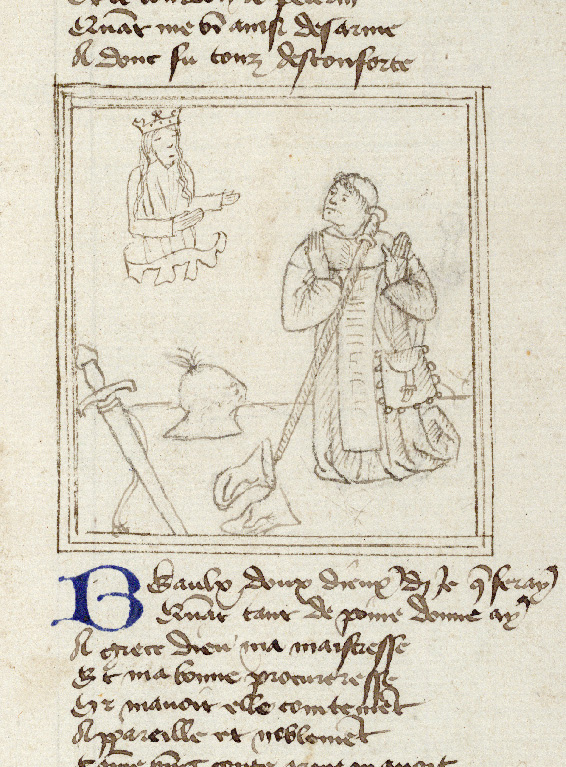 Quãt me vi ainsi desarme
A donc fu touz desconforte
Beaulx doux dieux dis Je q̃ feray
Quãt tant de peine donne ay
A grace dieu ma maistresse
Et ma bonne procurresse
Qr mauoit elle cointemẽt
Appareille et noblemẽt